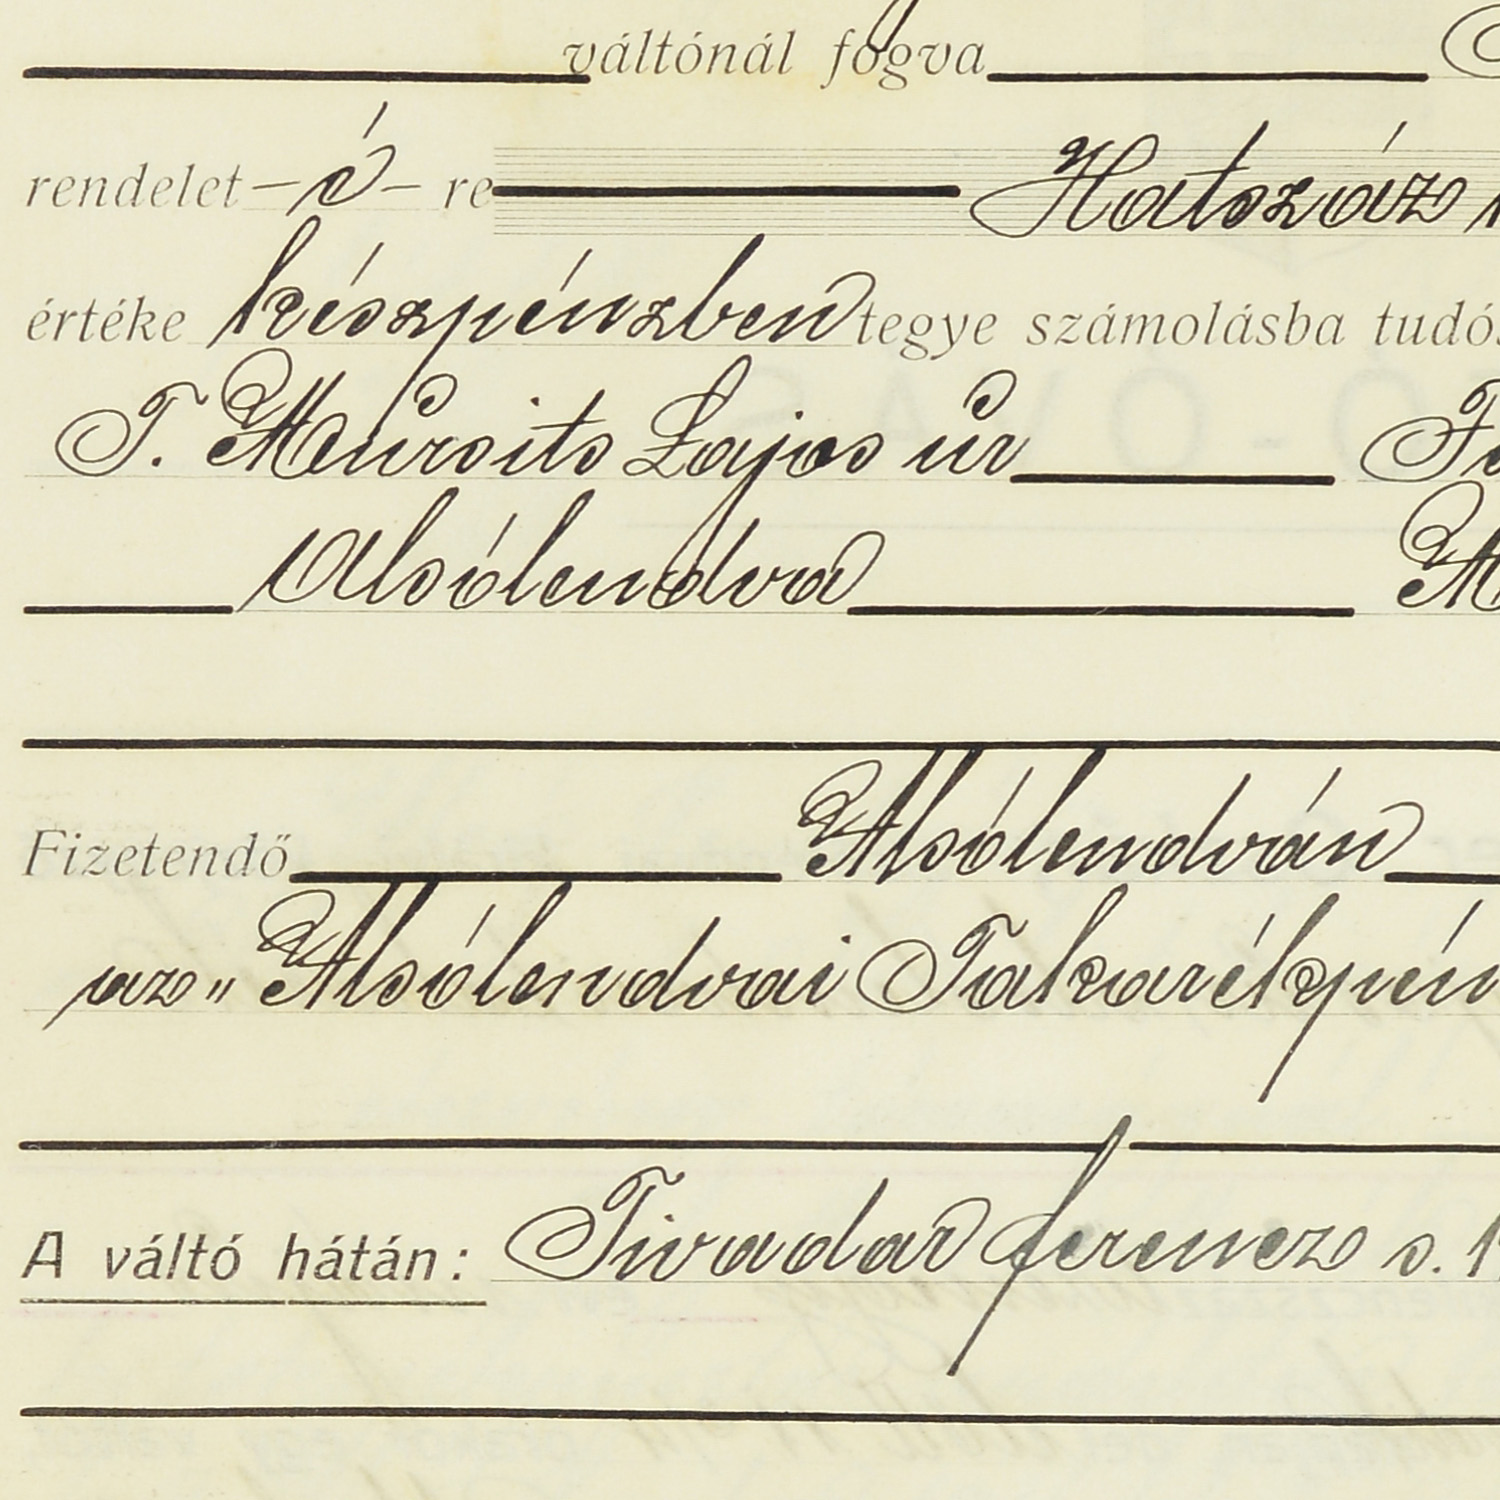 váltónál fogva
rendelet – é – re Hatszáz
értéke készpénzben tegye számolásba
T. Lajos úr
Alsólendva
Fizetendő Alsólendván
az „ Alsólendvai Takarékpén
A váltó hátán: Tivadar ferencz s.